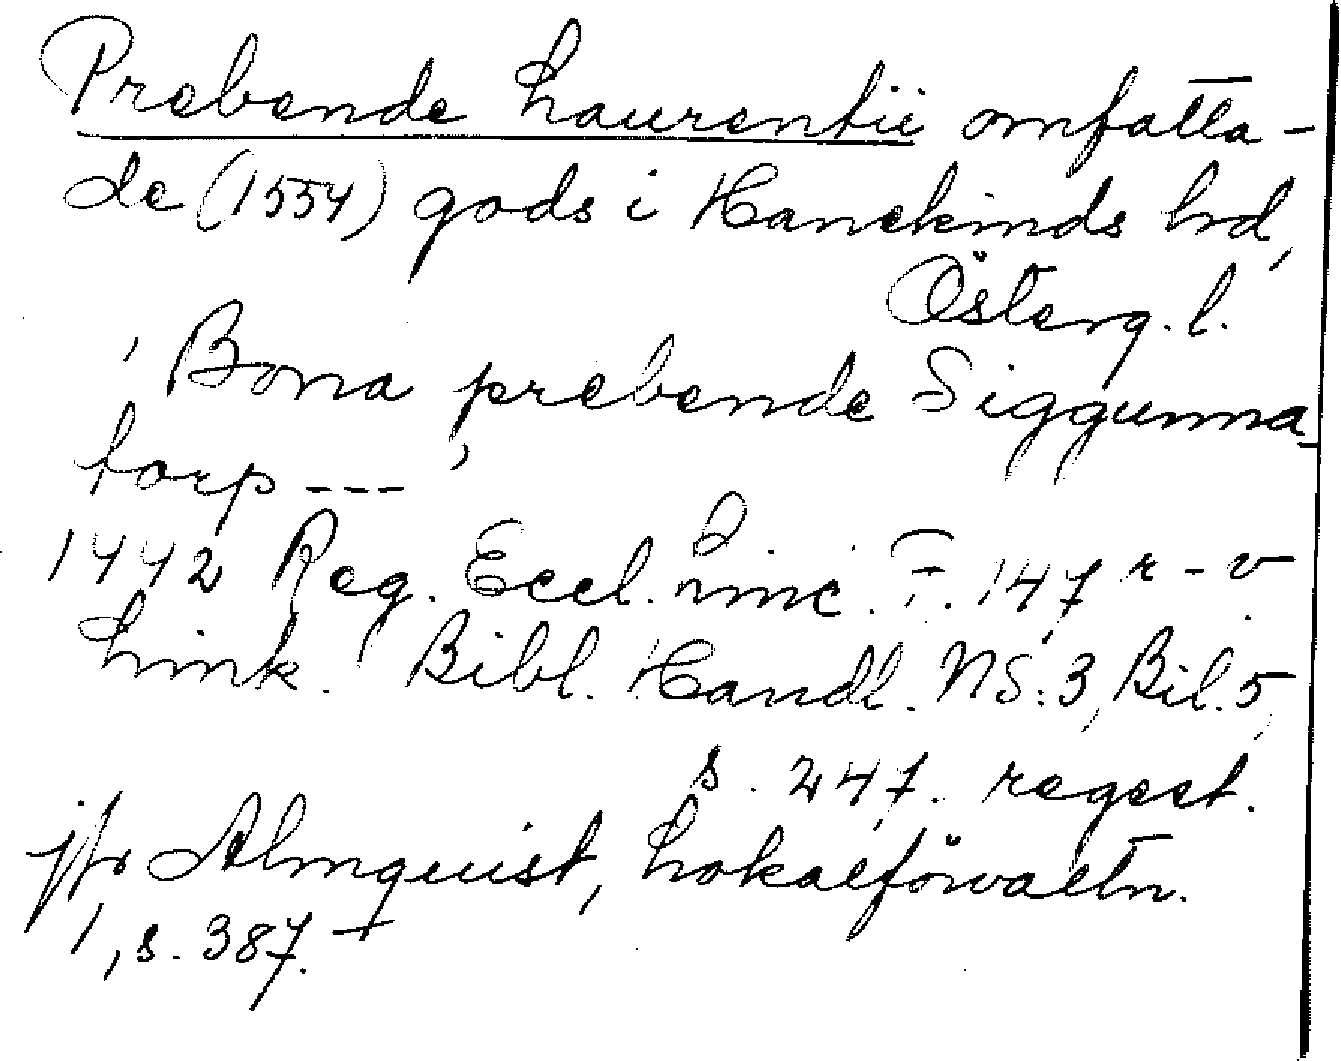 Prebende Laurentii omfatta-
de (1554) gods i Hanekinds hd,
Österg. l.
, Bona prebende Siggunna-
torp --- ,
1442 Reg. Eccl. Linc. F. 147 r-v
Link. Bibl. Handl. NS: 3, Bil. 5,
s. 247. regest.
jfr Almquist, Lokalförvaltn.
1, s. 387. +